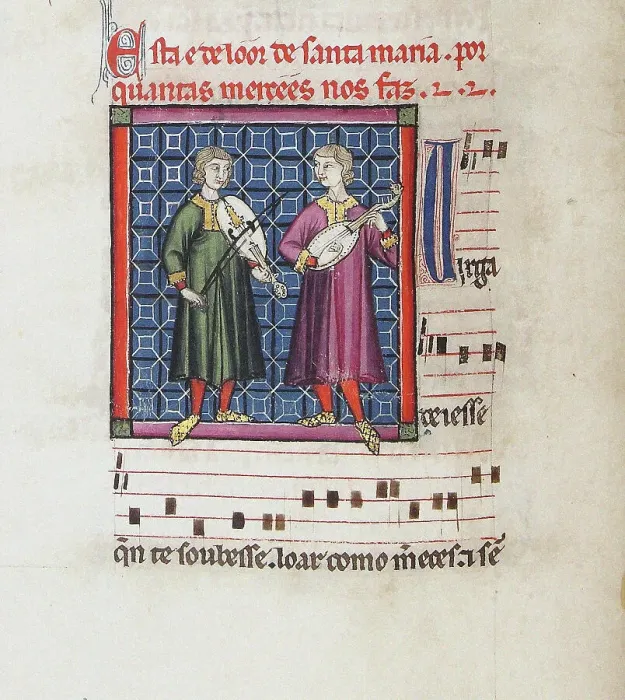 Esta e de loor de santa maria . por
quantas mercees nos faz .
Uirga
de iesse
q̄n te soubesse . loar como m̄eces . ⁊ sē